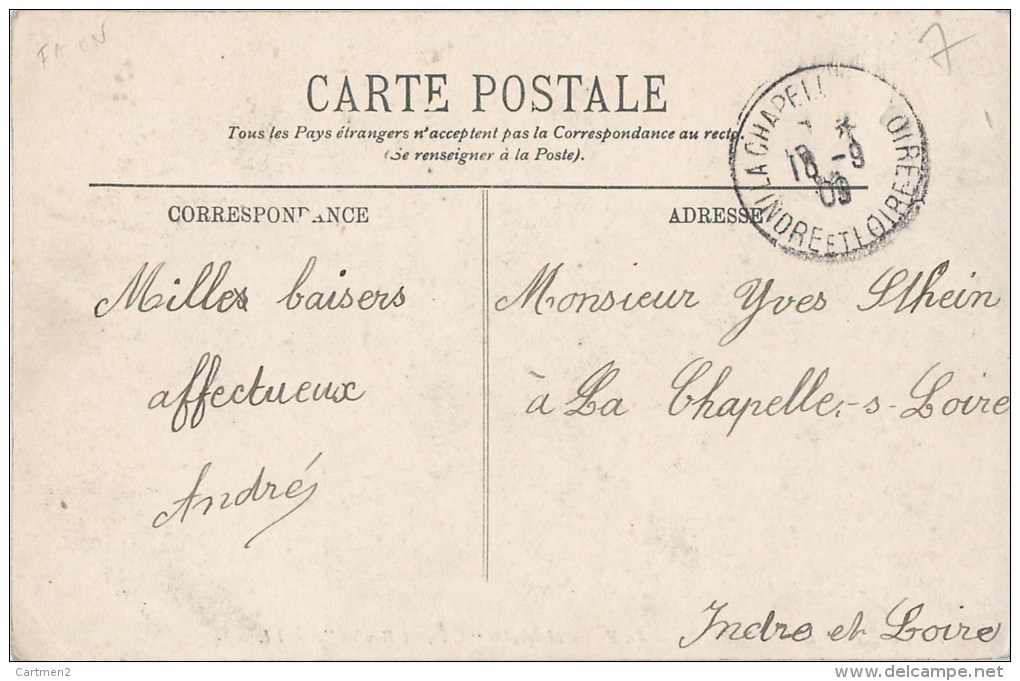 CARTE POSTALE
Tous les Pays étrangers n'acceptent pas la Correspondance au recto
(Se renseigner à la Poste).
LA CHAPELL OIRE
INDRE ET LOIRE
-9
09
CORRESPONDANCE
ADRESSE
Milles baisers
affectueux
André
Monsieur Yves
à La Chapelle-s-Loire
Indre et Loire
Cartmen2
www.delcampe.net